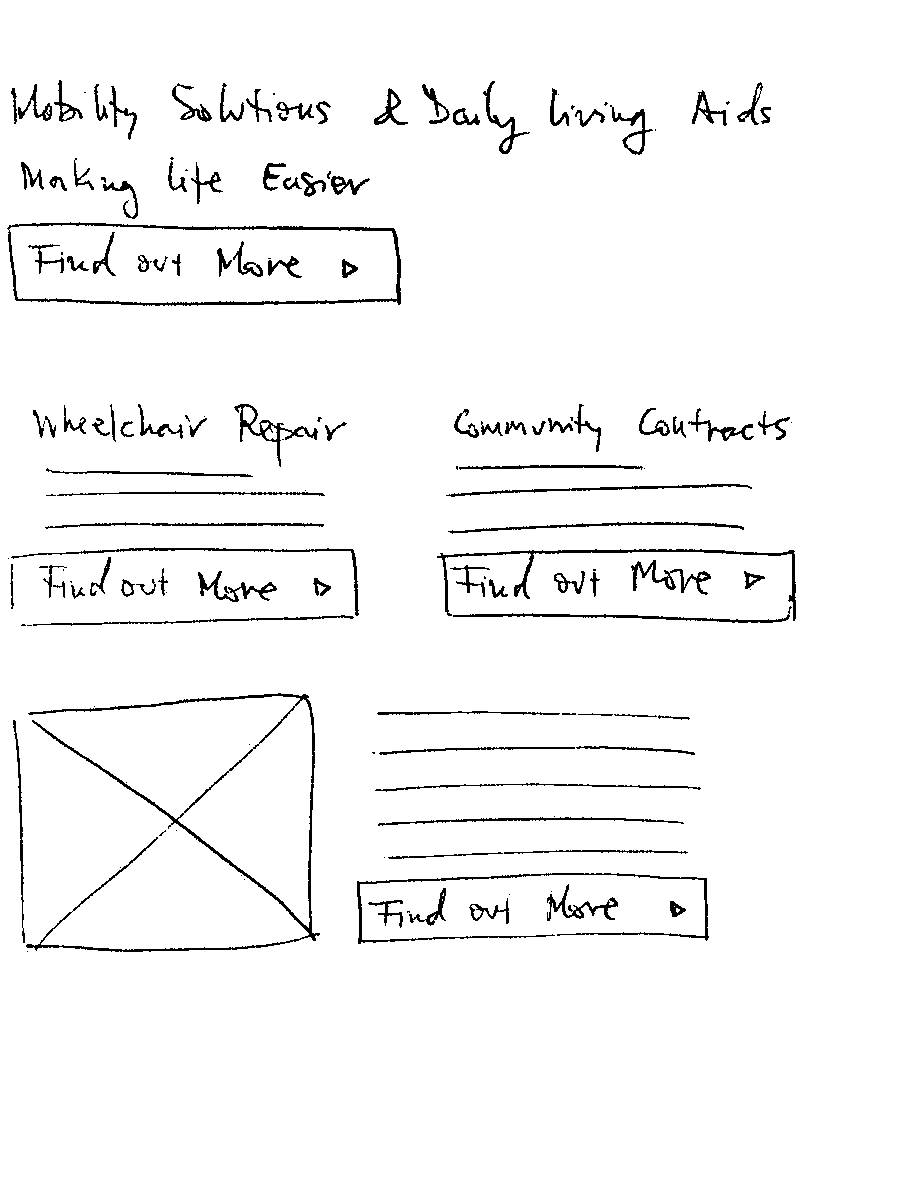 Mobility Solutions & Daily living Aids
Making life Easier
Find out More
Wheelchair Repair
Community Contracts
Find out More
Find out More
Find out More